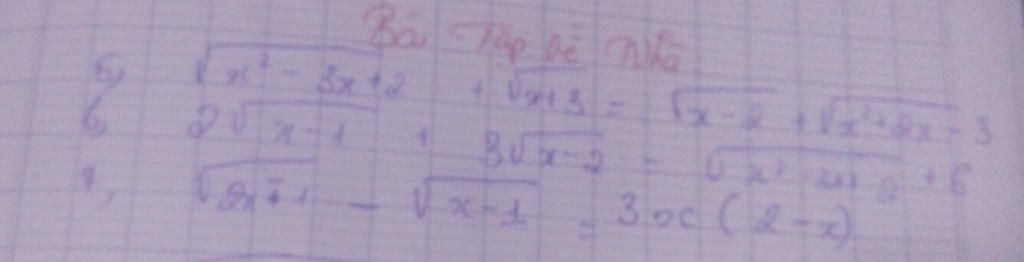 Bài Tập Về Nhà
5, √(x² - 3x + 2) + √(x+3) = √(x-2) + √(x²+2x-3)
6, 2√(x-1) + 3√(x-2) = √(x²-3x+2) + 6
7, √(2x-1) - √(x-1) = 3x(2-x)